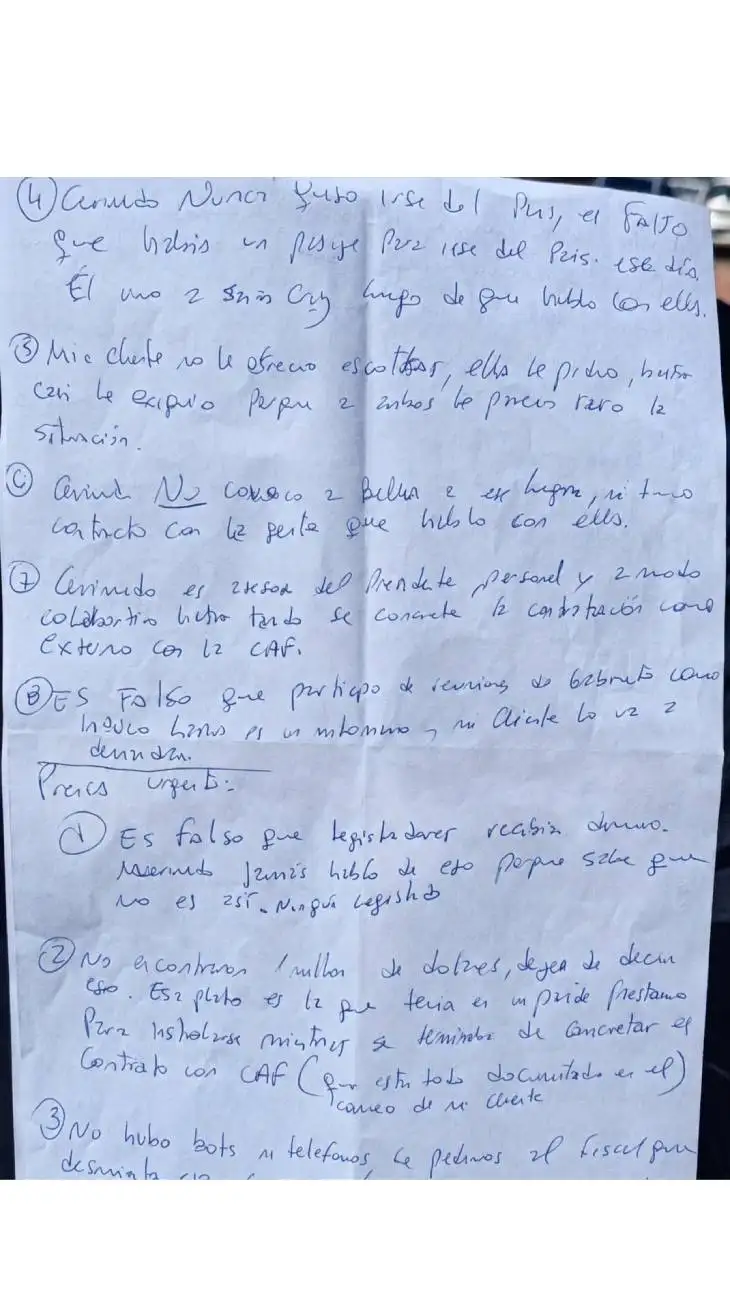 ④ Cerimedo Nunca quiso irse del País, es FALSO
que había un pasaje para irse del País. ese día.
Él vino a Santa Cruz luego de que habló con ella.
⑤ Mi cliente no le ofreció escoltas, ella le pidió, hasta
casi le exigió porque a ambos le pareció raro la
situación.
⑥ NO conoció a Bella a ese lugar, ni tuvo
contacto con la gente que habló con ella.
⑦ Cerimedo es asesor del Presidente, personal y a modo
colaborativo hasta tanto se concrete la contratación como
externo con la CAF.
⑧ ES FALSO que participó de reuniones de Gabinete como
es un mitómano, mi cliente lo va a
denunciar.
urgente:
① Es falso que legisladores recibían dinero.
jamás habló de eso porque sabe que
no es así. Ningún legislador
② No encontraron 1 millón de dólares, dejen de decir
eso. Esa plata es la que tenía en préstamo
Para instalarse mientras se terminaba de concretar el
Contrato con CAF (que está todo documentado en el)
correo de mi cliente
③ No hubo bots ni teléfonos, le pedimos al fiscal que
desmienta